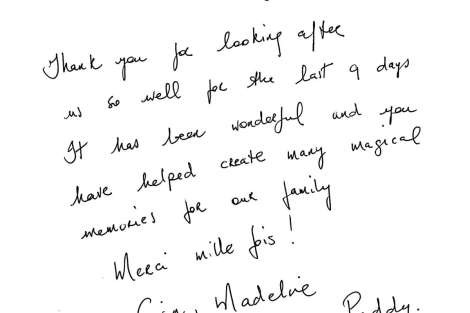 Thank you for looking after
us so well for the last 9 days
It has been wonderful and you
have helped create many magical
memories for our family
Merci mille fois!
Madeline